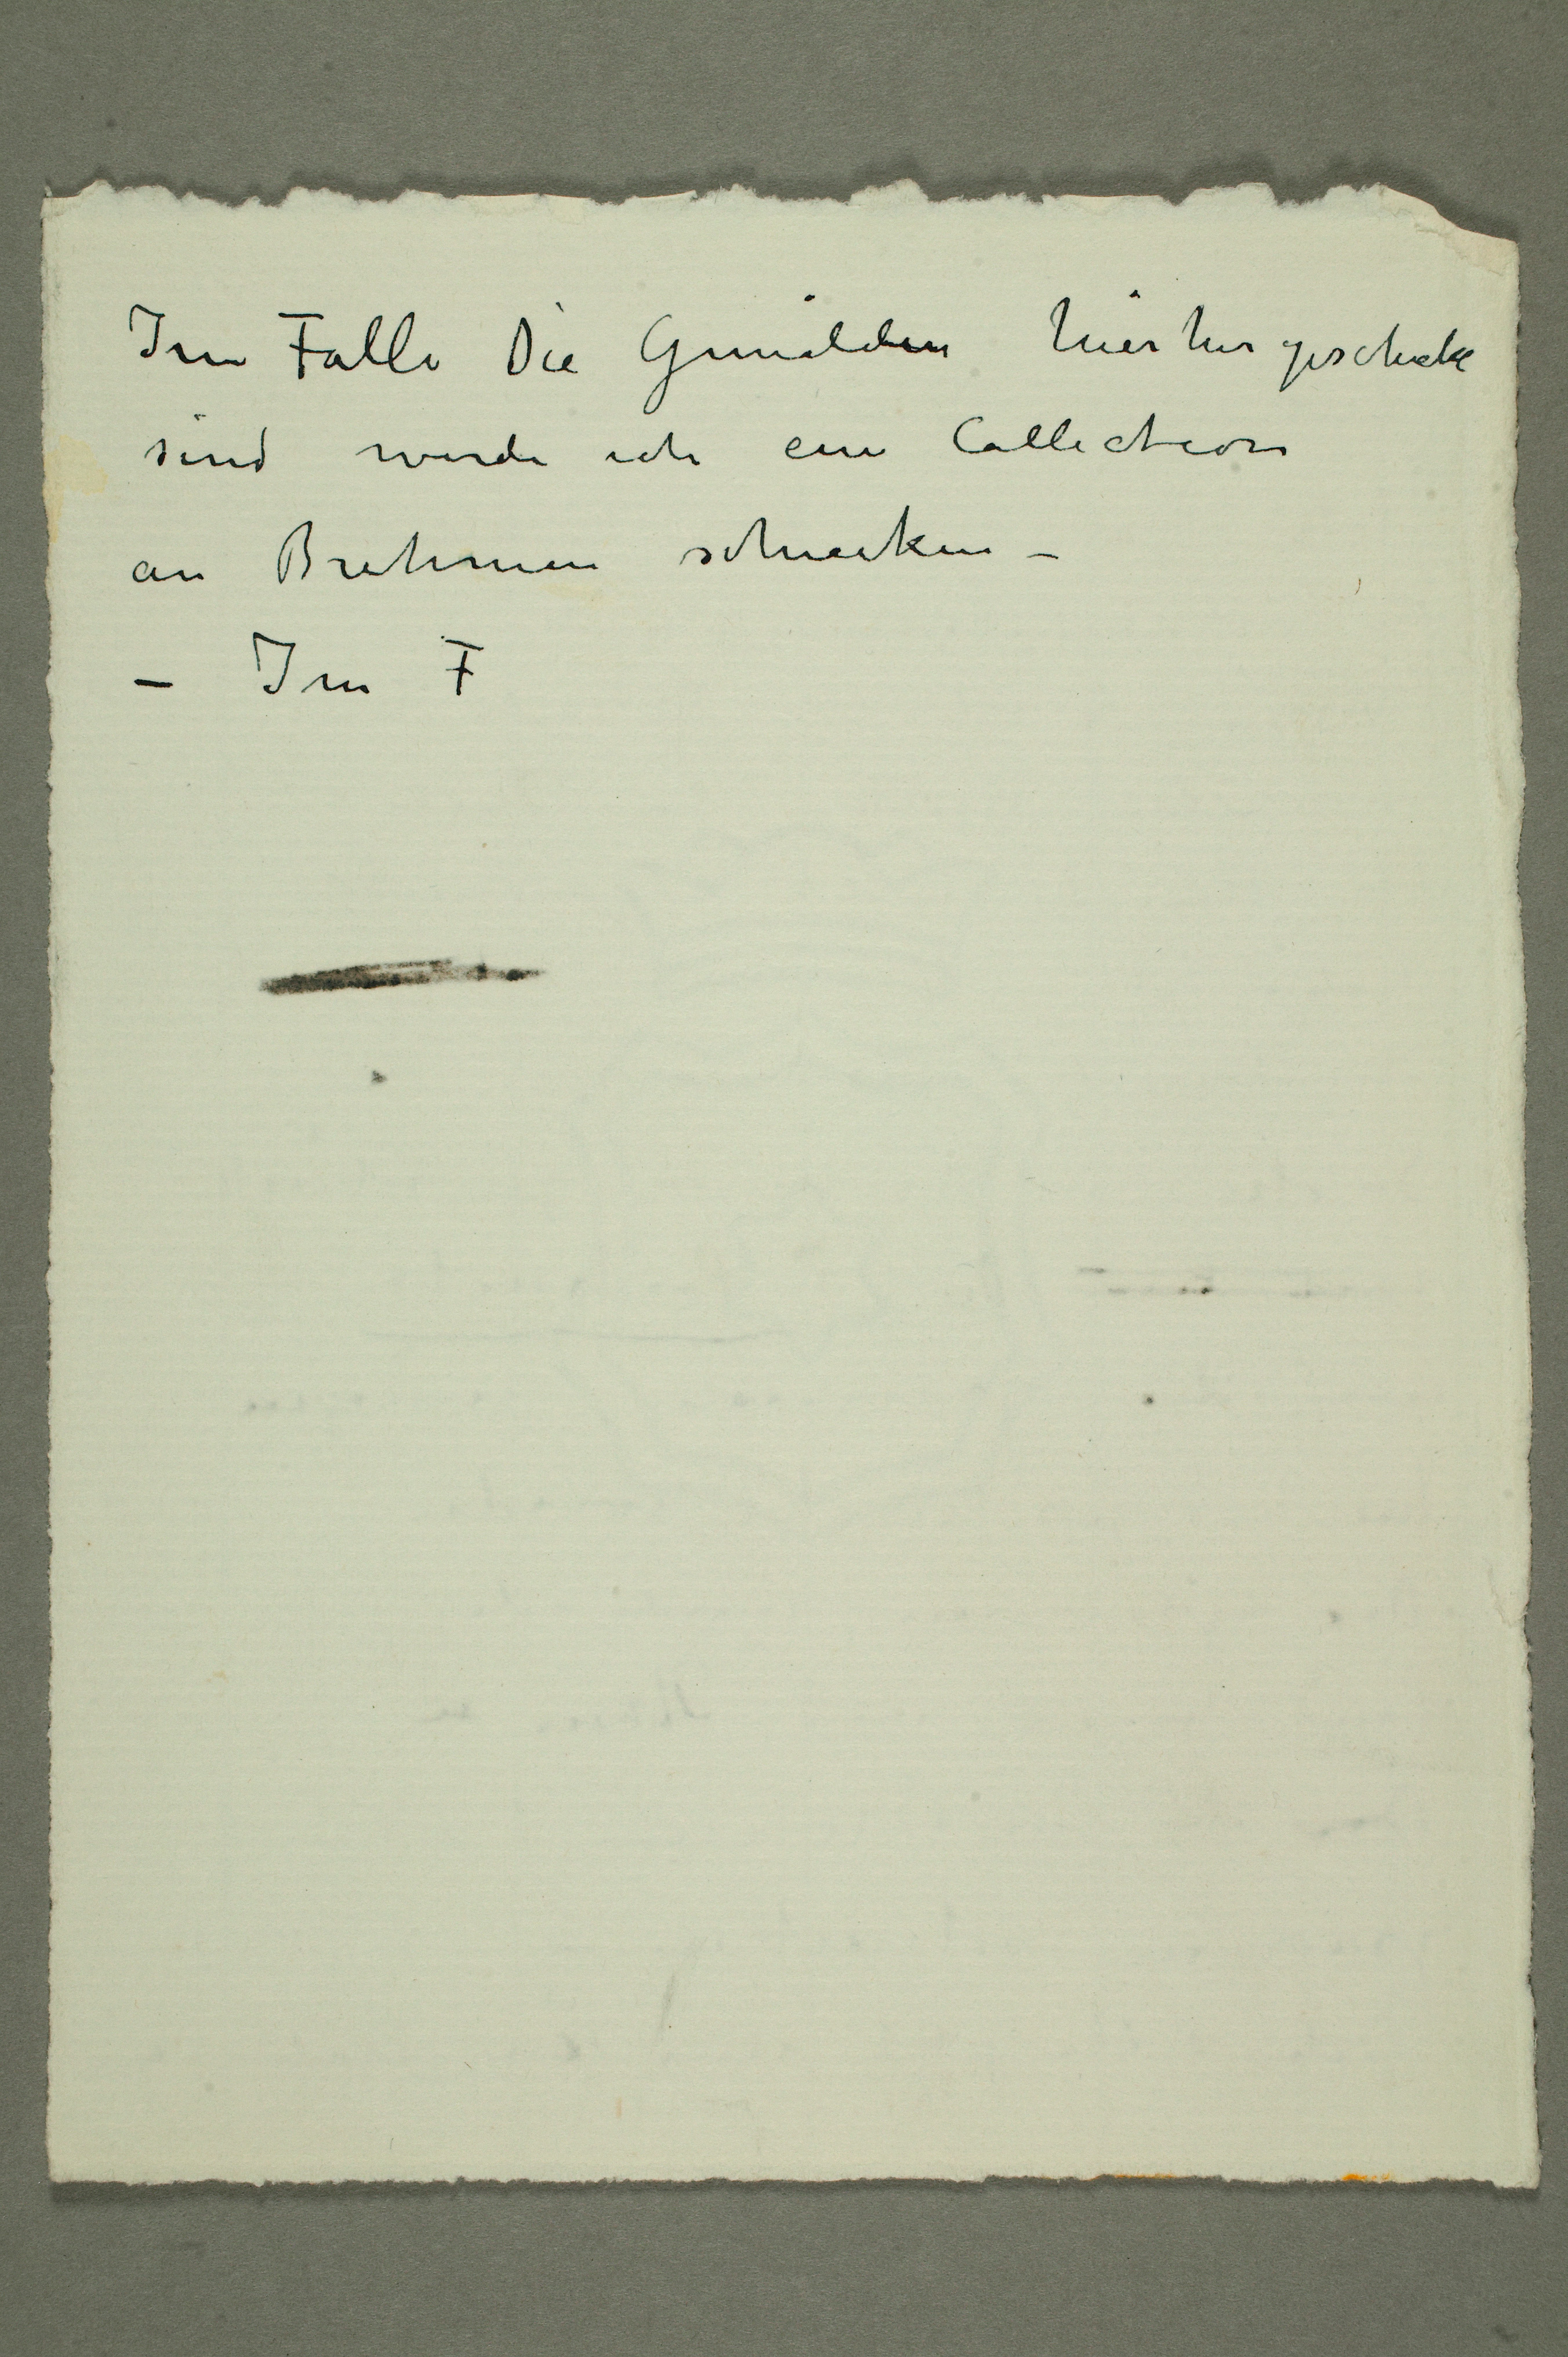 Im Falle Die Gemälden hierher geschickt
sind werde ich eine Collection
an Brehmen schicken –
– Im F